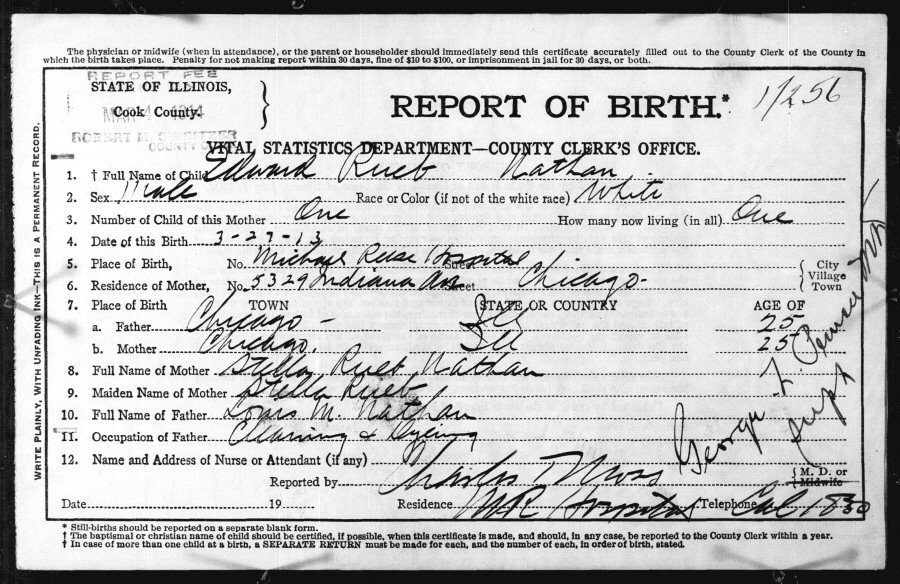 The physician or midwife (when in attendance), or the parent or householder should immediately send this certificate accurately filled out to the County Clerk of the County in
which the birth takes place. Penalty for not making report within 30 days, fine of $10 to $100, or imprisonment in jail for 30 days, or both.
REPORT FEB
STATE OF ILLINOIS,
Cook County.
MAR 4 1914
ROBERT M. SWEITZER
COUNTY CLERK
REPORT OF BIRTH.*
11256
VITAL STATISTICS DEPARTMENT—COUNTY CLERK'S OFFICE.
1. † Full Name of Child Edward Rueb Nathan
2. Sex Male Race or Color (if not of the white race) White
3. Number of Child of this Mother One How many now living (in all) One
4. Date of this Birth 3-27-13
5. Place of Birth, No. Michael Reese Hospital Street
6. Residence of Mother, No. 5329 Indiana Ave Street Chicago- { City Village Town
7. Place of Birth TOWN STATE OR COUNTRY AGE OF
a. Father Chicago - Ill 25
b. Mother Chicago. Ill 25
8. Full Name of Mother Stella Rueb Nathan
9. Maiden Name of Mother Stella Rueb
10. Full Name of Father Louis M. Nathan
11. Occupation of Father Cleaning & Dyeing
12. Name and Address of Nurse or Attendant (if any)
Reported by Charles Moss { M. D. or Midwife
Date 19 Residence MR Hospital Telephone Cal 1830
George F.
Supt
WRITE PLAINLY, WITH UNFADING INK—THIS IS A PERMANENT RECORD.
* Still-births should be reported on a separate blank form.
† The baptismal or christian name of child should be certified, if possible, when this certificate is made, and should, in any case, be reported to the County Clerk within a year.
‡ In case of more than one child at a birth, a SEPARATE RETURN must be made for each, and the number of each, in order of birth, stated.